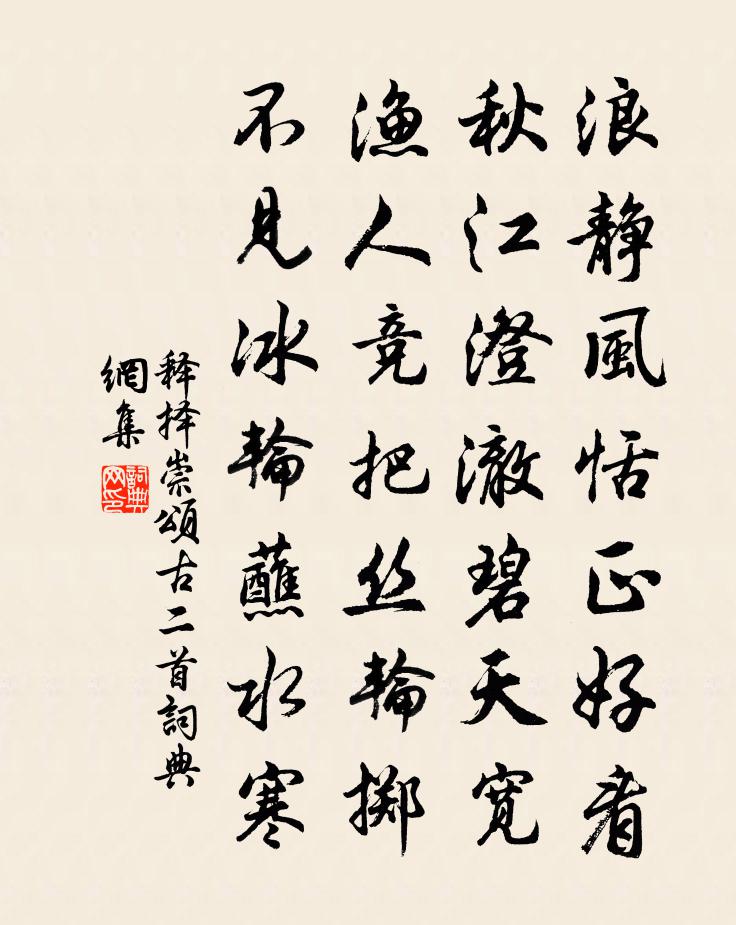 浪静風恬正好看
秋江澄澈碧天寬
漁人竞把丝輪掷
不見冰輪蘸水寒
释择崇頌古二首詞典
網集
詞典网印